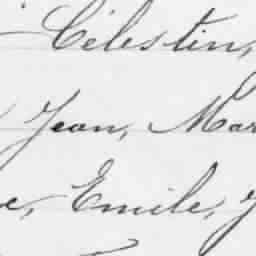 Célestin,
Jean, Mar
e, Emile, J